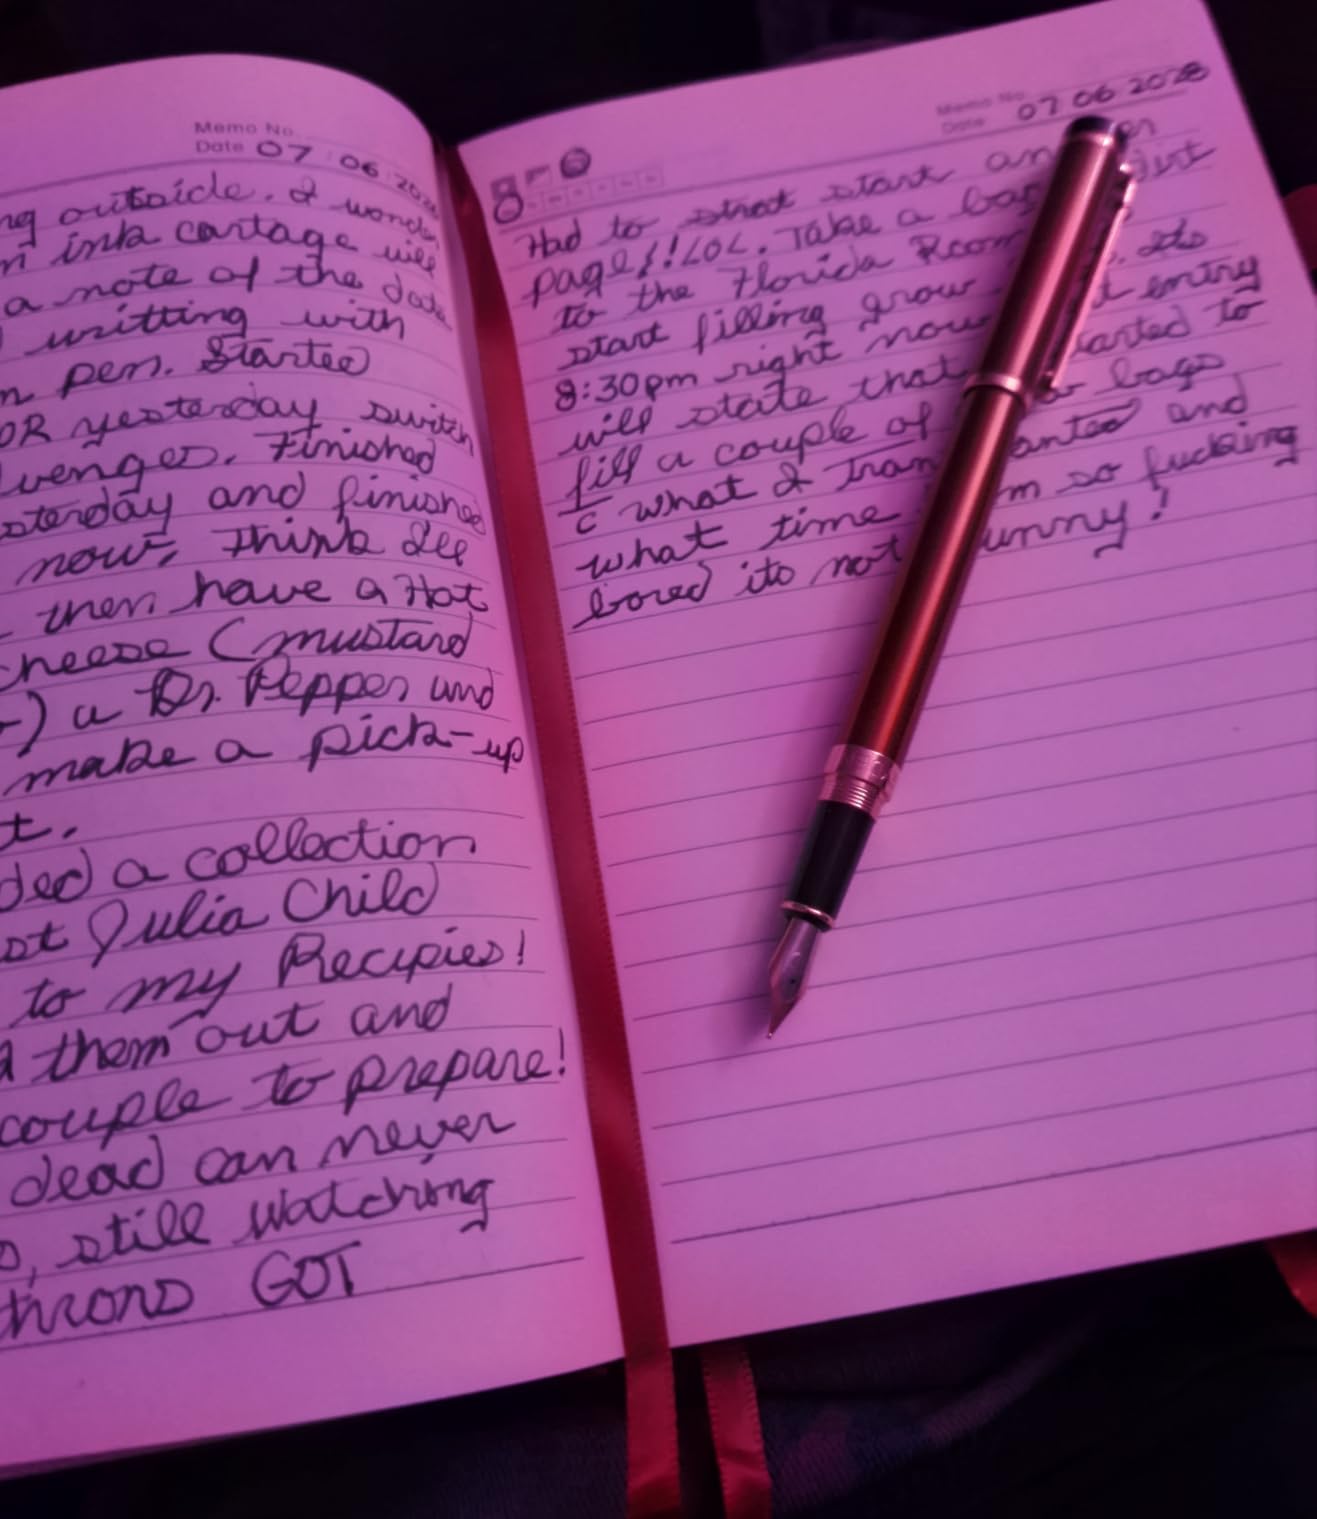 Memo No.
Date 07 06 202
ng outside. I wonder
n ink cartage will
a note of the date
writting with
n pen. Started
OR yesterday switch
venges. Finished
sterday and finished
now, Think I'll
then have a Hot
cheese (mustard
) a Dr. Pepper and
make a pick-up
t.
ded a collection
st Julia Child
to my Recipies!
d them out and
couple to prepare!
dead can never
still watching
throns GOT
Memo No.
Date 07 06 2028
Had to strat start an er
page!!LOL. Take a bag dirt
to the Florida Room
start filling grow . Its
8:30pm right now t entry
will state that I started to
fill a couple of bags
c what I tran anted and
what time m so fucking
bored its not unny!